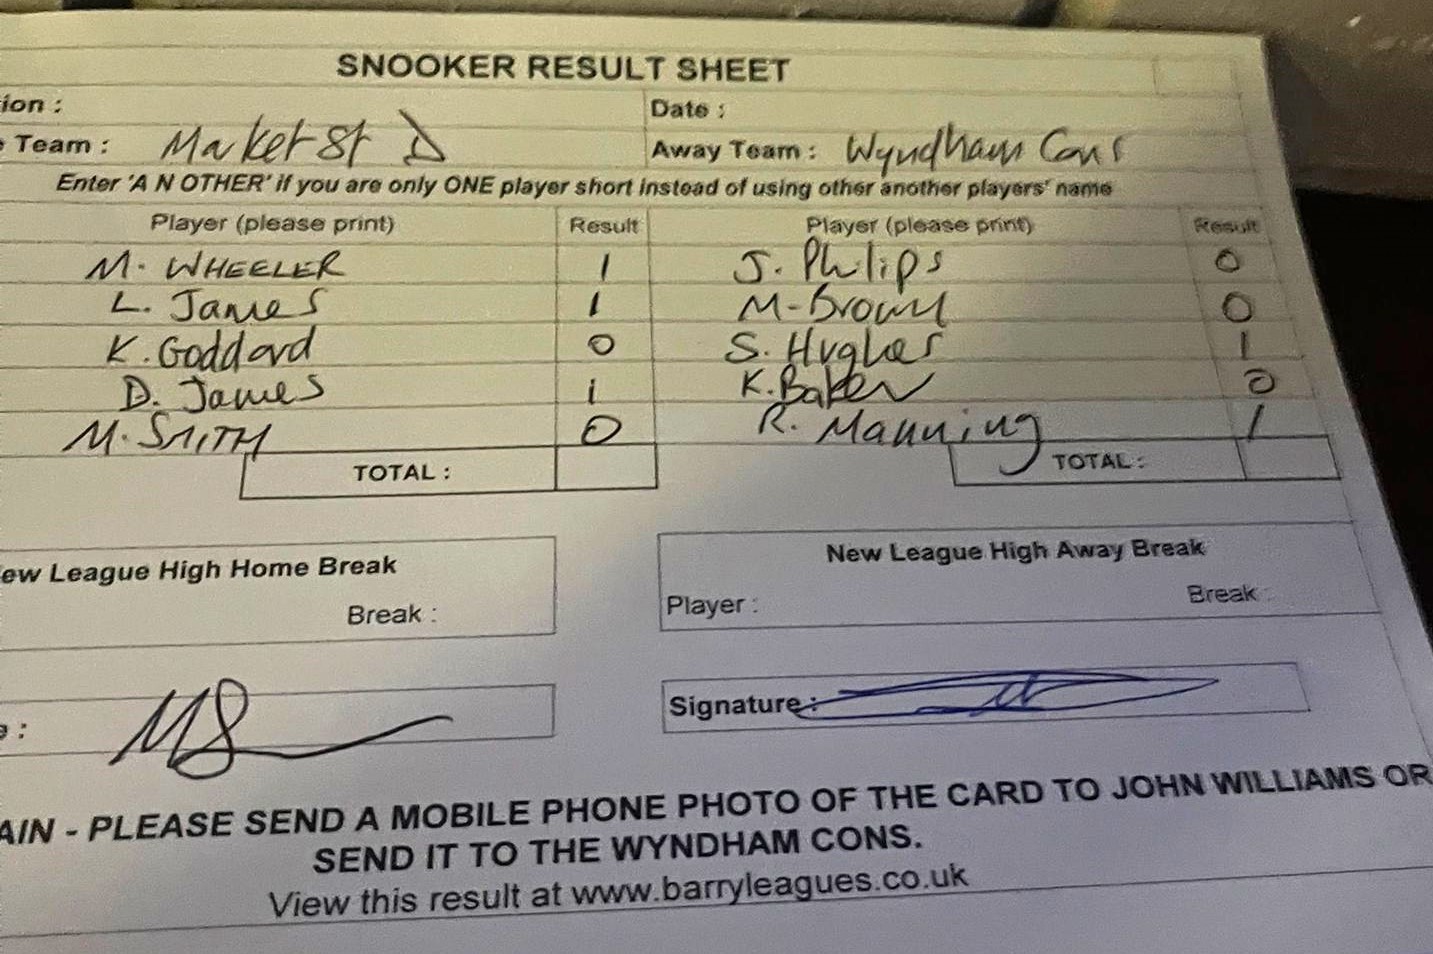 SNOOKER RESULT SHEET
ion : Date :
Team : Market St D Away Team : Wyndham Cons
Enter 'A N OTHER' if you are only ONE player short instead of using other another players' name
Player (please print) Result Player (please print) Result
M. WHEELER 1 J. Philips 0
L. James 1 M. Brown 0
K. Goddard 0 S. Hughes 1
D. James 1 K. Baker 0
M. SMITH 0 R. Manning 1
TOTAL : TOTAL :
ew League High Home Break New League High Away Break
Break : Player : Break :
e : MS Signature :
AIN - PLEASE SEND A MOBILE PHONE PHOTO OF THE CARD TO JOHN WILLIAMS OR
SEND IT TO THE WYNDHAM CONS.
View this result at www.barryleagues.co.uk